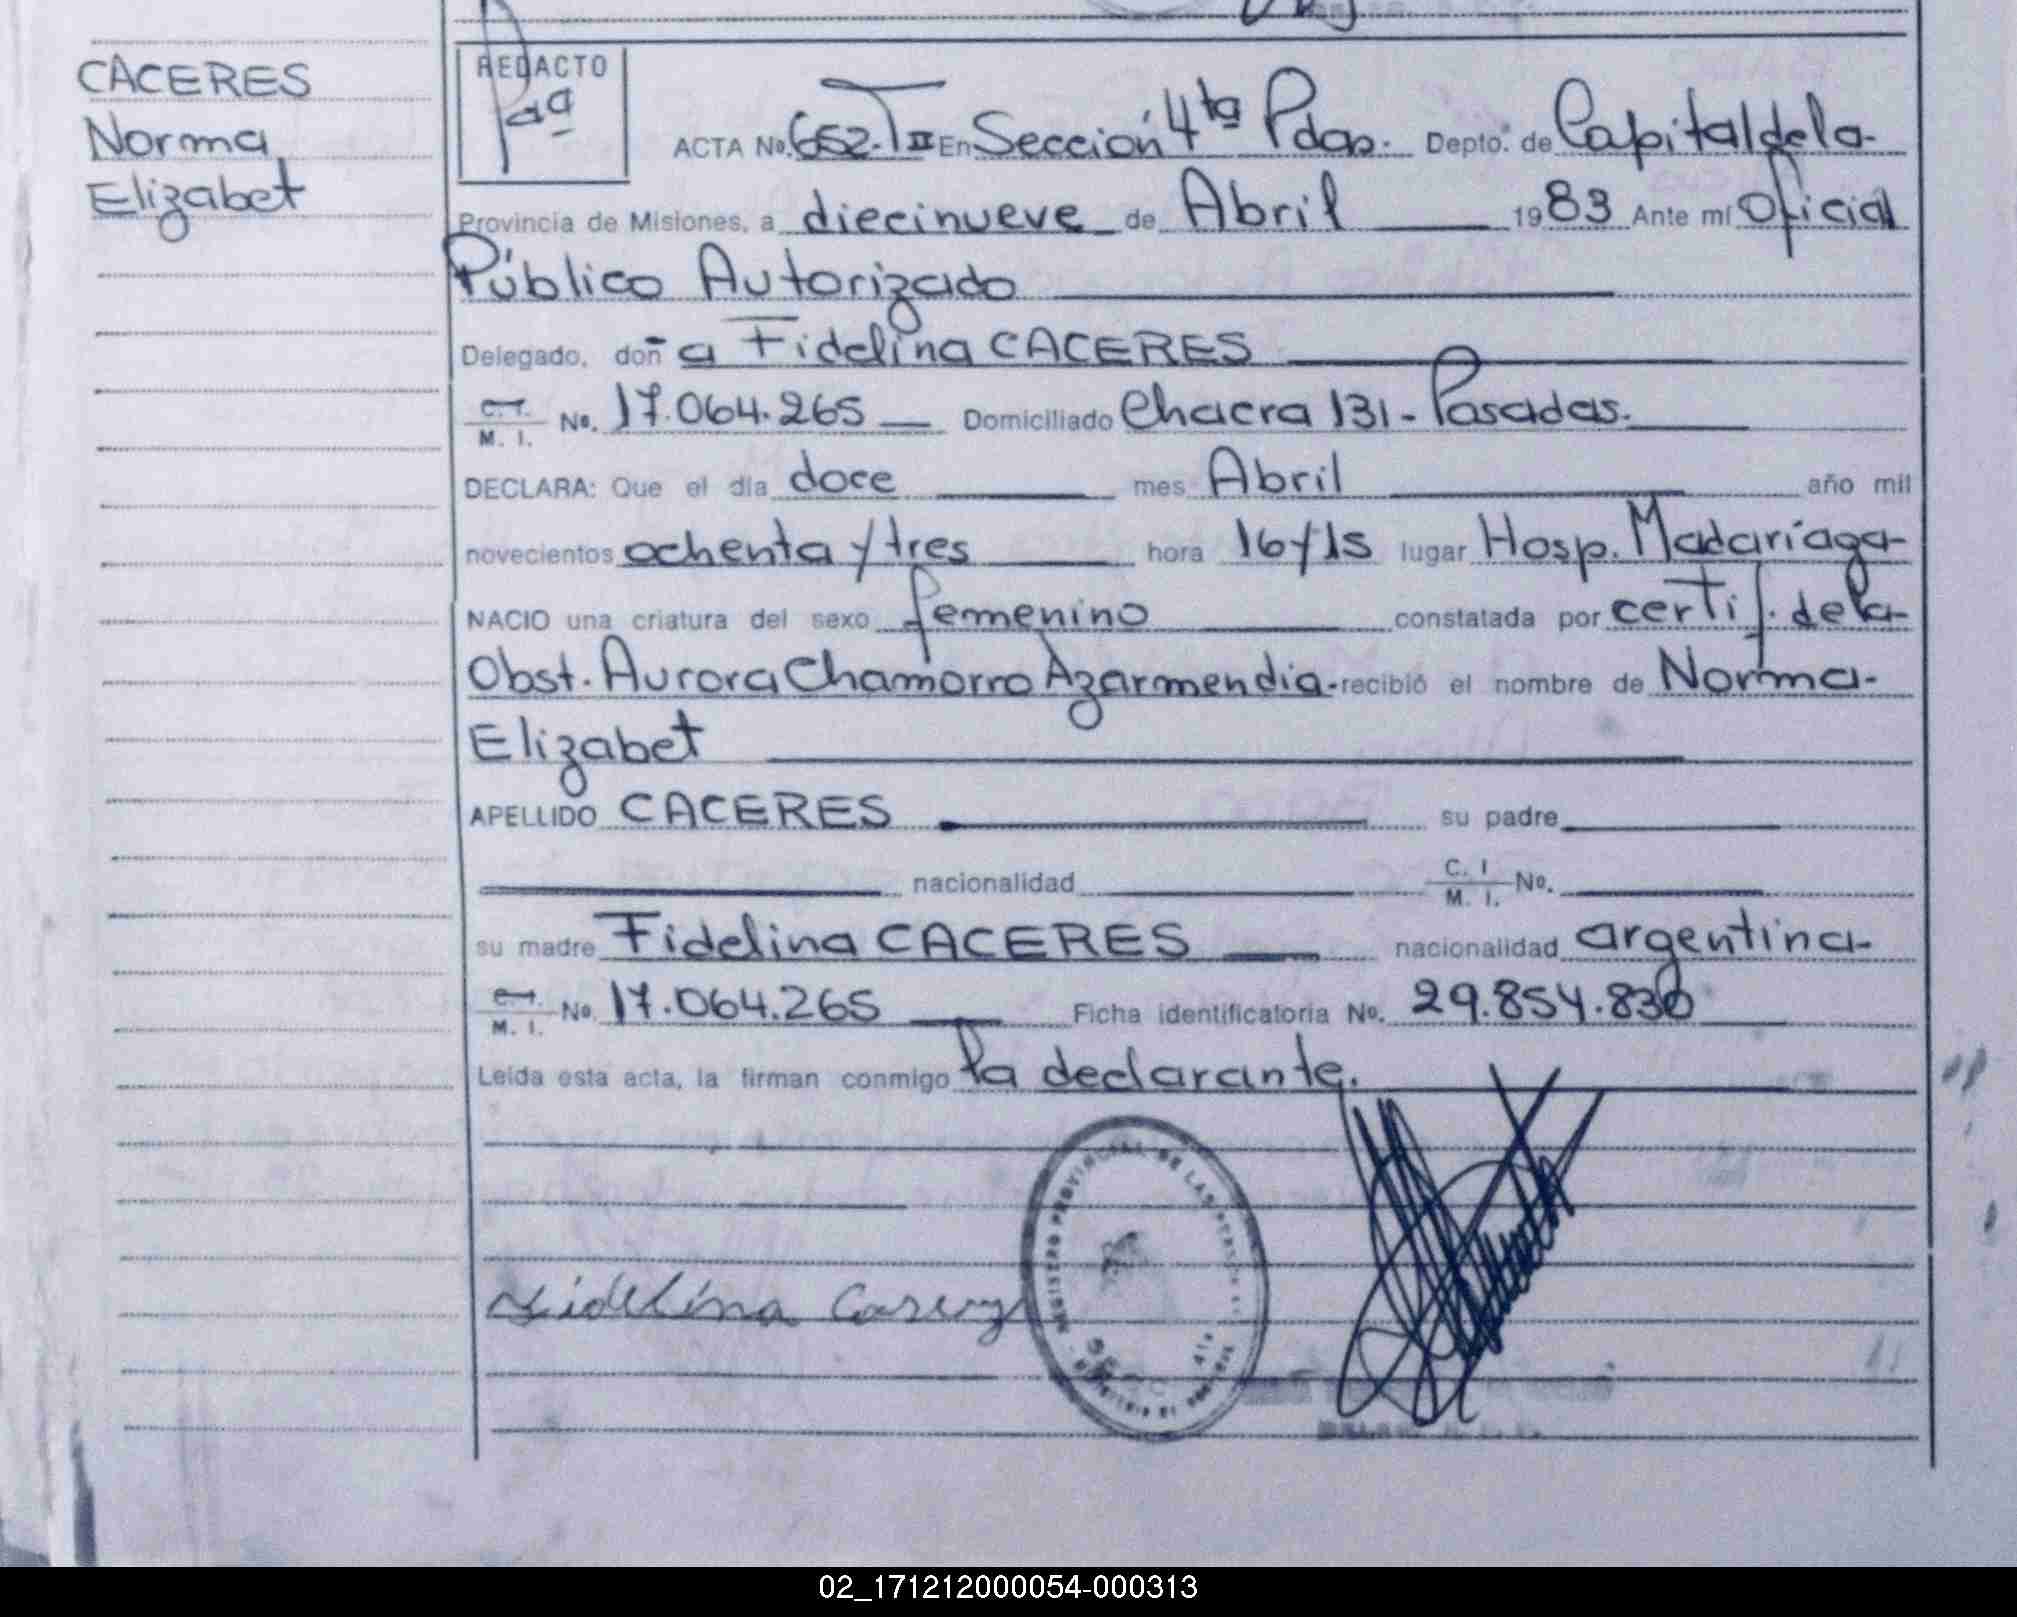 CACERES
Norma
Elizabet
REDACTO
ACTA No. 652. T II En Sección 4ta Pdas. Depto. de Capital de la
Provincia de Misiones, a diecinueve de Abril 1983 Ante mí Oficial
Público Autorizado
Delegado, doña Fidelina CACERES
C.I. M. I. No. 17.064.265 Domiciliado Chacra 131 - Posadas.
DECLARA: Que el día doce mes Abril año mil
novecientos ochenta y tres hora 16 y 15 lugar Hosp. Madariaga
NACIO una criatura del sexo femenino constatada por certif. de la
Obst. Aurora Chamorro Azarmendia. recibió el nombre de Norma
Elizabet
APELLIDO CACERES su padre
nacionalidad C. I M. I. No.
su madre Fidelina CACERES nacionalidad argentina
C.I. M. I. No. 17.064.265 Ficha identificatoria No. 29.854.830
Leída esta acta, la firman conmigo la declarante.
REGISTRO PROVINCIAL DE LAS PERSONAS
Fidelina
02_171212000054-000313